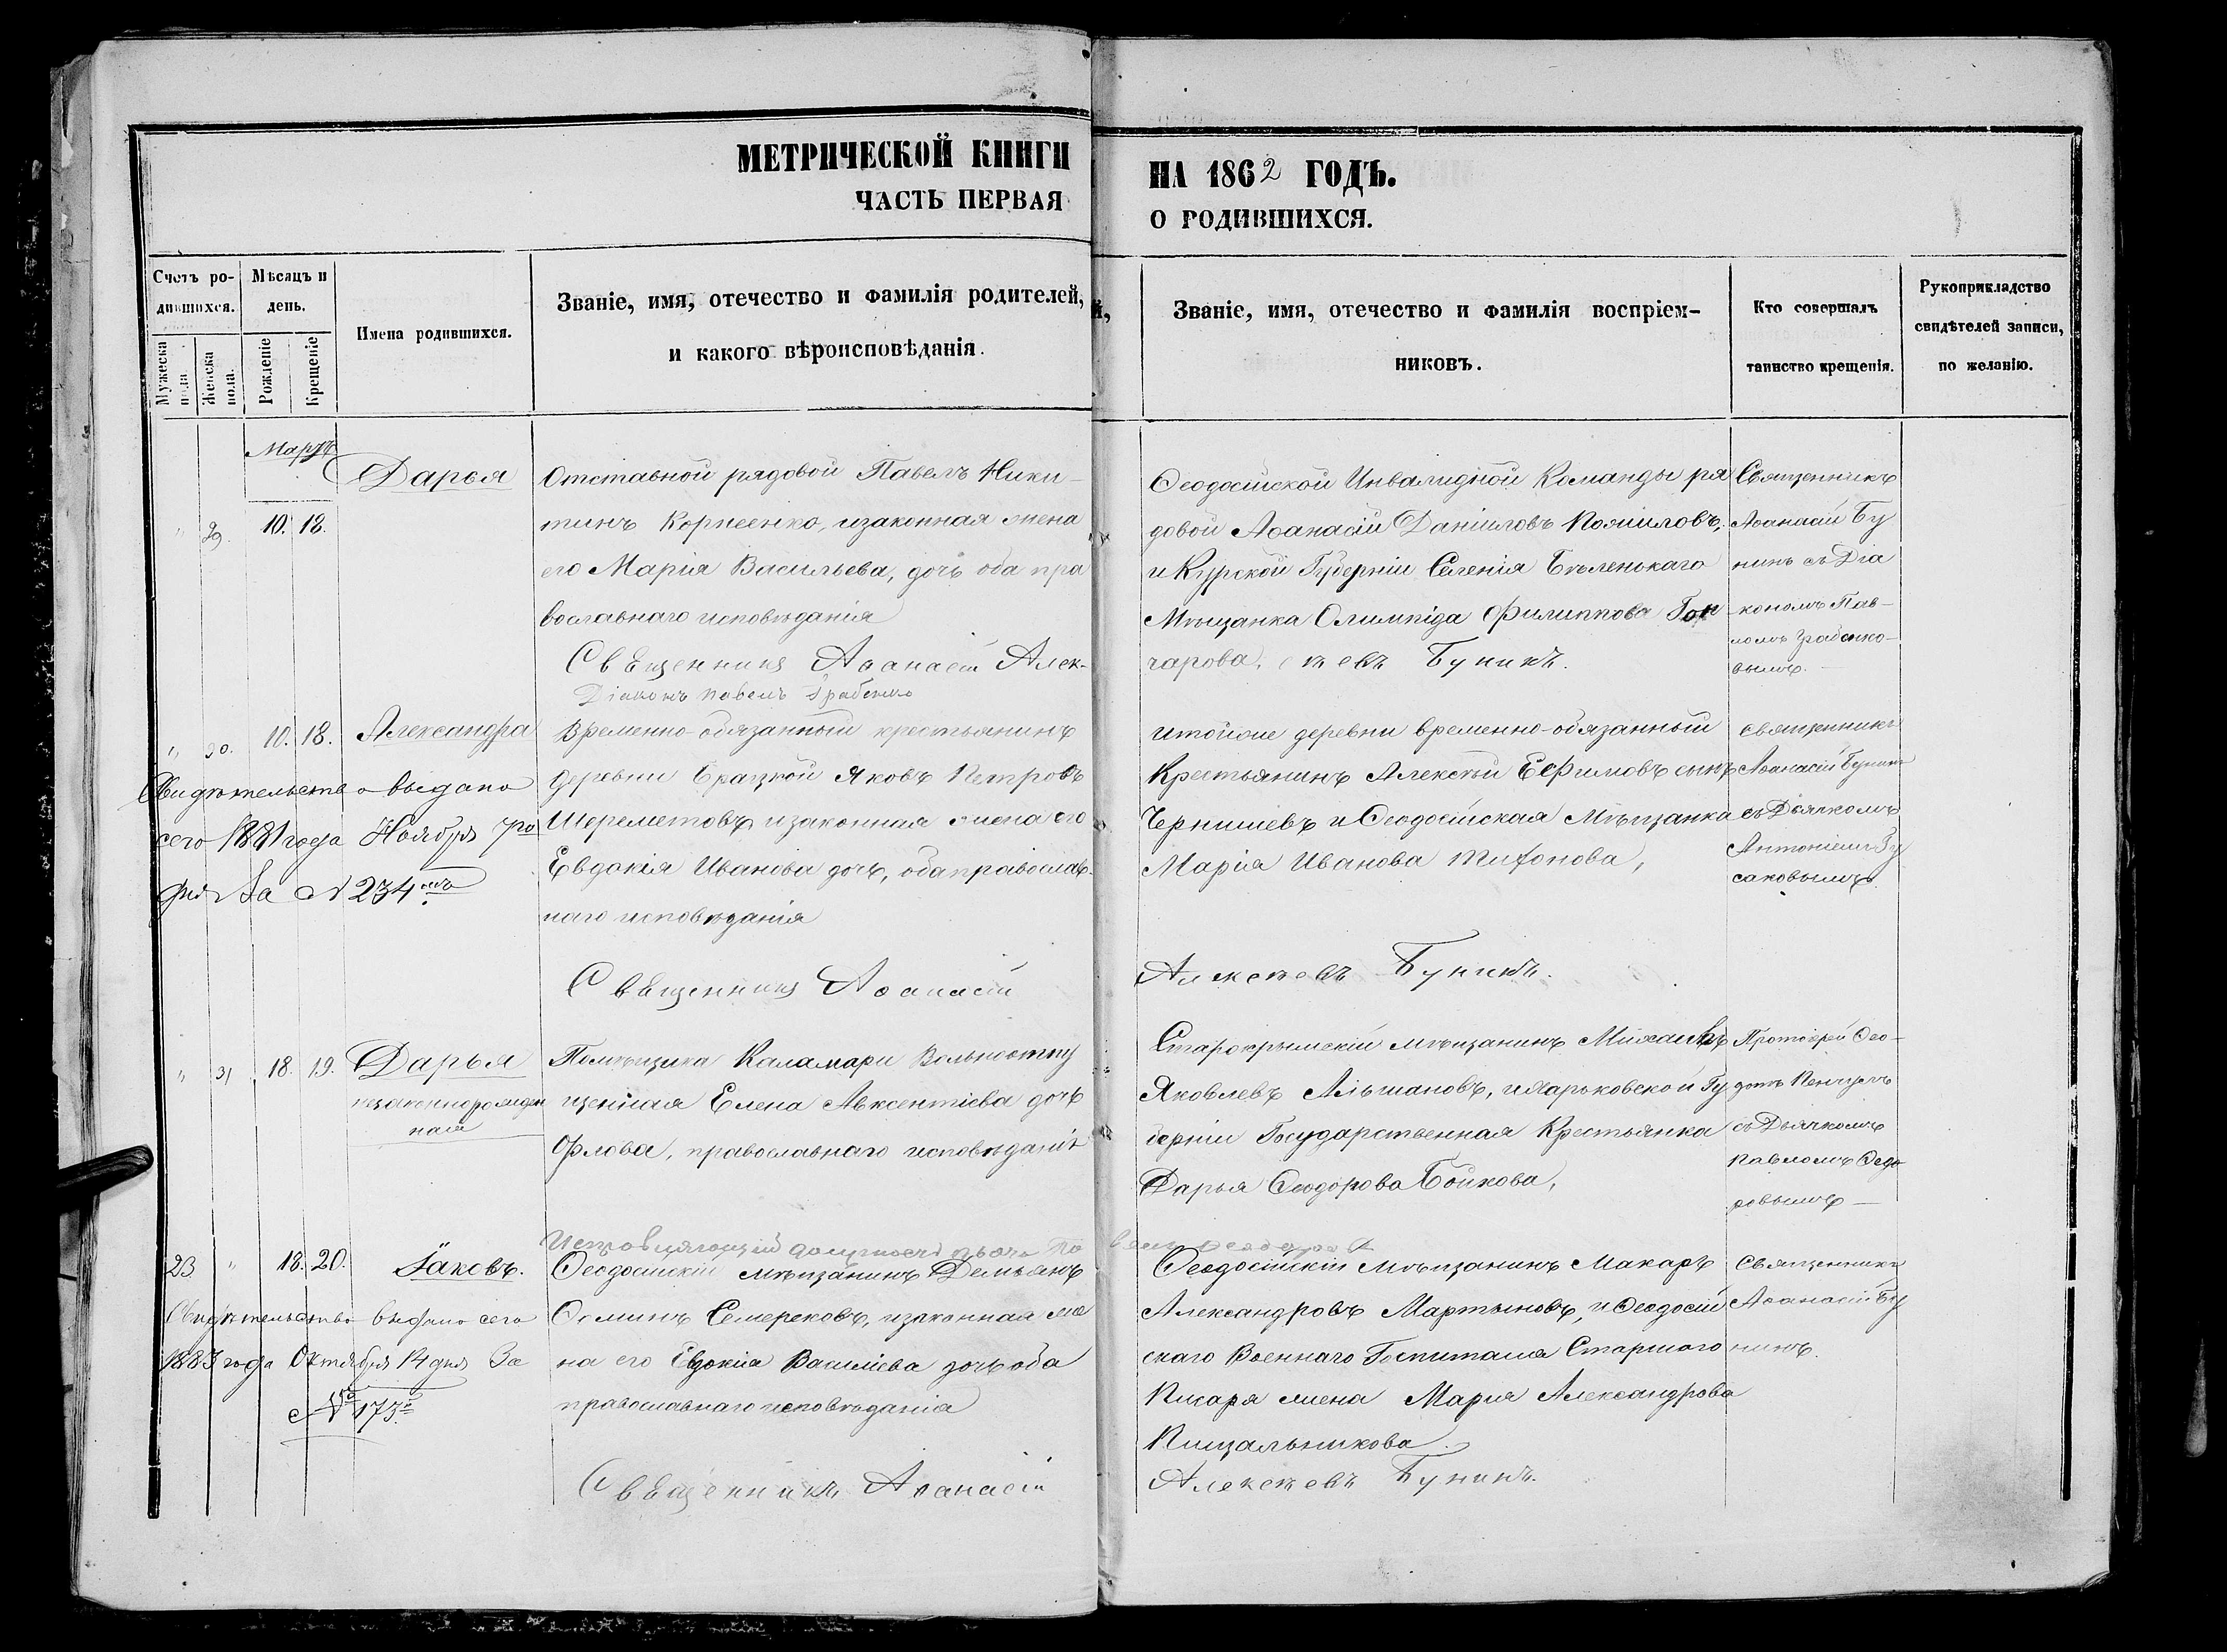 МЕТРИЧЕСКОЙ КНИГИ
ЧАСТЬ ПЕРВАЯ
НА 1862 ГОДЪ.
О РОДИВШИХСЯ.
Счетъ ро-
дившихся.
Мужеска
пола.
Женска
пола.
Мѣсяцъ и
день.
Рожденіе
Крещеніе
Имена родившихся.
Званіе, имя, отечество и фамилія родителей,
и какого вѣроисповѣданія.
Званіе, имя, отечество и фамилія воспріем-
никовъ.
Кто совершалъ
таинство крещенія.
Рукоприкладство
свидѣтелей записи,
по желанію.
Мартъ
" 29. 10. 18.
Дарья
Отставной рядовой Павелъ Ники-
тинъ Корнеенко, изаконная жена
его Марія Васильева, дочь оба пра
вославнаго исповѣданія
Свѣщенникъ Аѳанасій Алек-
Діаконъ Павелъ Грабенко
Ѳеодосійской Инвалидной Команды ря
довой Аѳанасій Даніиловъ
и Курской Губерніи Селенія Бѣленькаго
Мѣщанка Олимпіда Филиппова Гон
чарова, ѣевъ Бунинъ.
Священникъ
Аѳанасій Бу
нинъ съ Діа
кономъ Пав-
ломъ
вымъ.
" 30. 10. 18. Александра
Свидѣтельство выдано
сего 1881 года Ноября 7го
дня За № 234
Временно-обязанный крестьянинъ
деревни Яковъ Петровъ
Шереметовъ, изаконная жена его
Евдокія Иванова дочь, оба православ-
наго исповѣданія
Свѣщенникъ Аѳанасій
итойже деревни временно-обязанный
Крестьянинъ Алексѣй Ефимовъ сынъ
Чернишевъ и Ѳеодосійская Мѣщанка
Марія Иванова
Алексѣевъ Бунинъ.
священникъ
Аѳанасій Бунинъ
съ Дьячкомъ
Антоніемъ
саковымъ.
" 31 18. 19. Дарья
незаконнорожден
ная
Помѣщика Каламари Вольноотпу
щенная Елена Авксентіева дочь
Орлова, православнаго исповѣданія
Исправляющій должность дьячка Па
велъ Ѳеодоровъ
Старокрымскій мѣщанинъ Михаилъ
Яковлевъ Альшановъ, и Харьковской Гу
берніи Государственная Крестьянка
Дарья Ѳеодорова Бойкова,
Протоіерей Ѳео-
дотъ
съ Дьячкомъ
Павломъ Ѳедо
ровымъ —
23 " 18. 20. Іаковъ.
Свидѣтельство выдано сего
1883 года Октября 14 дня За
№ 173.
Ѳеодосійскій мѣщанинъ Демьянъ
Ѳоминъ Семерековъ, изаконная же
на его Евдокіа Василіева дочь оба
православнаго исповѣданія
Свѣщенникъ Аѳанасій
Ѳеодосійскій Мѣщанинъ Макаръ
Александровъ Мартыновъ, и Ѳеодосій
скаго Военнаго Госпиталя Старшого
Писаря жена Мария Александрова
Пищальникова.
Алексѣевъ Бунинъ.
Священникъ
Аѳанасій Бу
нинъ.